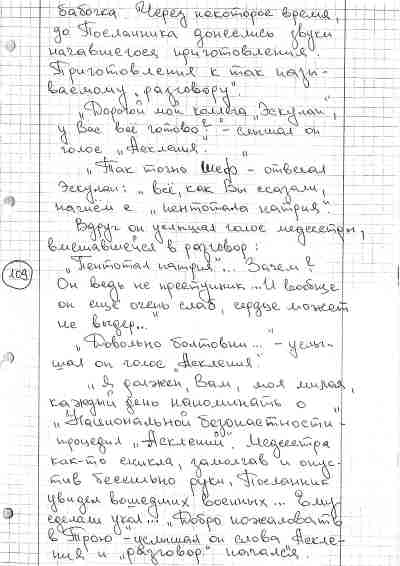 бабочка. Через некоторое время,
до Посланника донеслись звуки
начавшегося приготовления.
Приготовления к так назы-
ваемому „разговору".
„Дорогой мой коллега „Эскулап",
у Вас всё готово?" - слышал он
голос „Асклепия".
„Так точно шеф" - отвечал
Эскулап: „всё, как Вы сказали,
начнём с „пентотала натрия".
Вдруг он услышал голос медсестры,
вмешавшейся в разговор:
„Пентотал натрия"... Зачем?
109
Он ведь не преступник... И вообще
он ещё очень слаб, сердце может
не выдер..."
„Довольно болтовни..." - услы-
шал он голос „Асклепия".
„Я должен, Вам, моя милая,
каждый день напоминать о
„Национальной безопастности" -
процедил „Асклепий". Медсестра
как-то сникла, замолчав и опус-
тив бессильно руки. Посланник
увидел вошедших военных... Ему
сделали укол... „Добро пожаловать
в Трою" - услышал он слова Аскле-
пия и „разговор" начался.